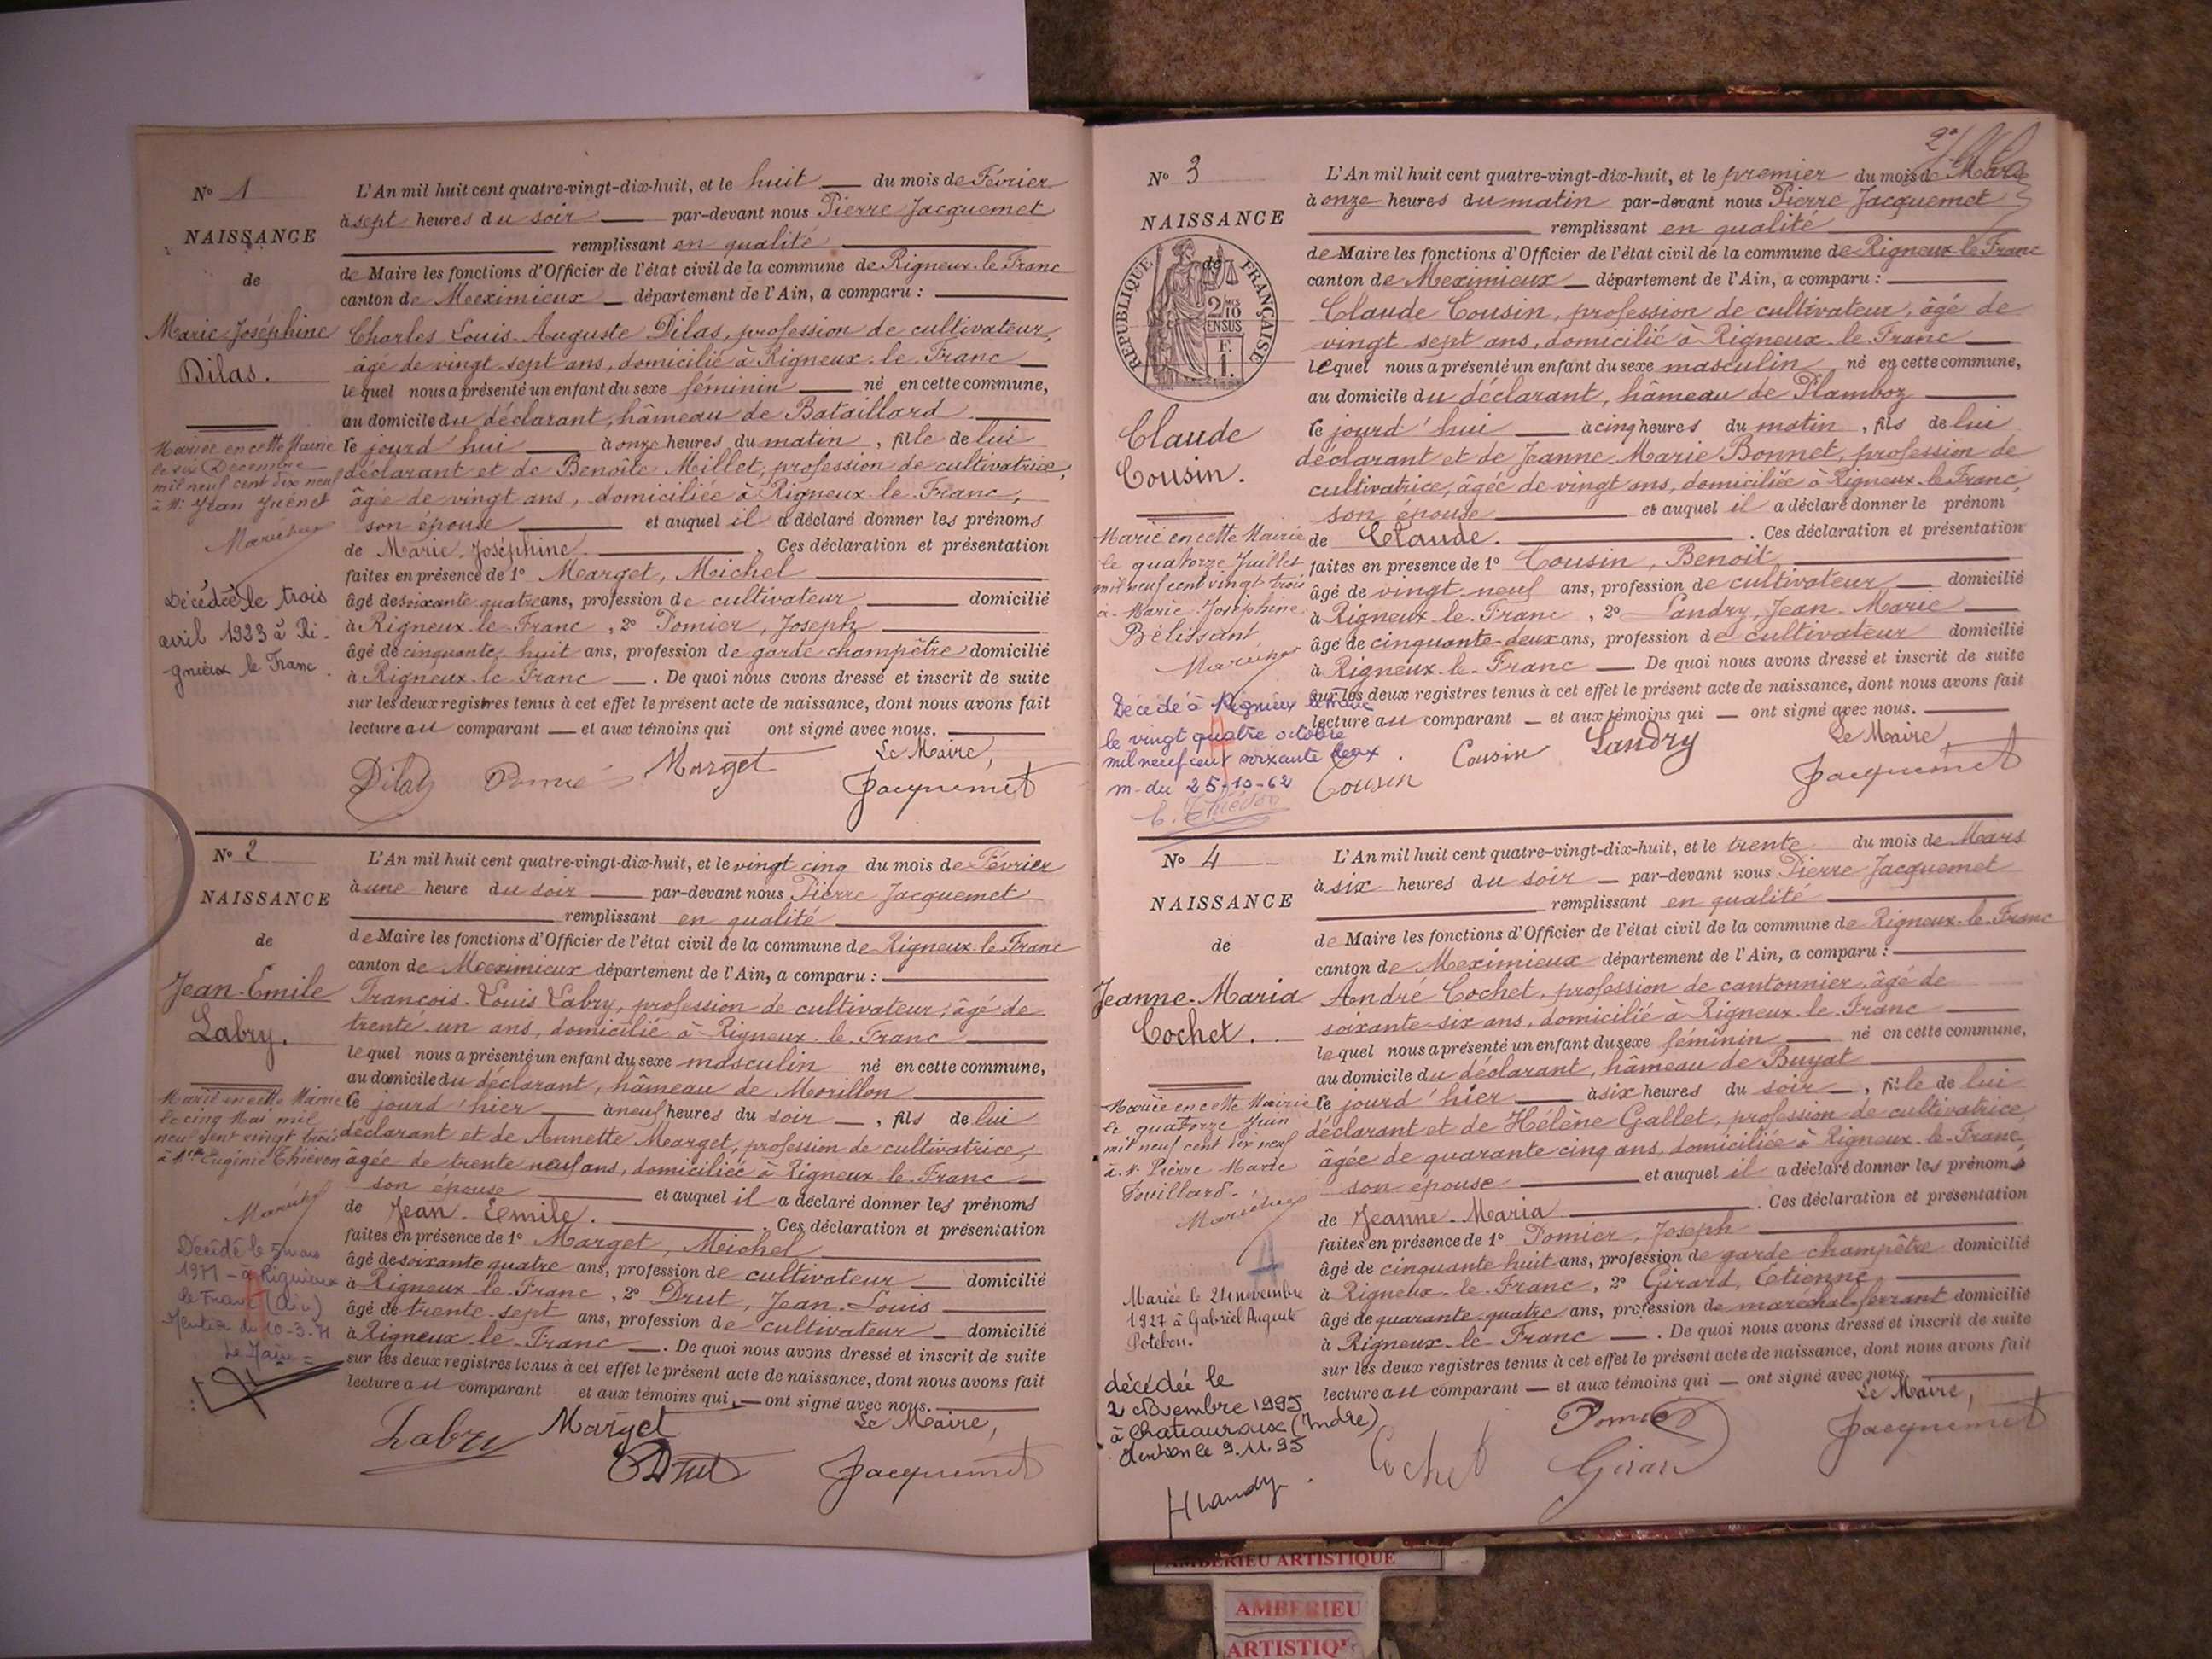 N° 1
NAISSANCE
de
Marie Joséphine
Dilas.
Mariée en cette Mairie
le six Décembre
mil neuf cent dix neuf
à Mr Jean Juénet
Maréchal
Décédée le trois
avril 1923 à Ri-
gnieux le Franc.
L'An mil huit cent quatre-vingt-dix-huit, et le huit du mois de Février
à sept heures du soir par-devant nous Pierre Jacquemet
remplissant en qualité
de Maire les fonctions d'Officier de l'état civil de la commune de Rigneux-le-Franc
canton de Meximieux département de l'Ain, a comparu :
Charles Louis Auguste Dilas, profession de cultivateur,
âgé de vingt-sept ans, domicilié à Rigneux-le-Franc
lequel nous a présenté un enfant du sexe féminin né en cette commune,
au domicile du déclarant, hâmeau de Bataillard
le jourd'hui à onze heures du matin, fille de lui
déclarant et de Benoîte Millet, profession de cultivatrice,
âgée de vingt ans, domiciliée à Rigneux-le-Franc,
son épouse et auquel il a déclaré donner les prénoms
de Marie-Joséphine. Ces déclaration et présentation
faites en présence de 1° Marget, Michel
âgé de soixante quatre ans, profession de cultivateur domicilié
à Rigneux-le-Franc, 2° Pomier, Joseph
âgé de cinquante-huit ans, profession de garde champêtre domicilié
à Rigneux-le-Franc. De quoi nous avons dressé et inscrit de suite
sur les deux registres tenus à cet effet le présent acte de naissance, dont nous avons fait
lecture au comparant et aux témoins qui ont signé avec nous.
Le Maire,
Dilas Pomié Marget Jacquemet
N° 2
NAISSANCE
de
Jean-Emile
Labry.
Marié en cette Mairie
le cinq Mai mil
neuf cent vingt trois
à Mlle Eugénie Thiévon
Maréchal
Décédé le 5 mars
1971 - à Rignieux
le Franc (Ain)
Mention du 10-3-71
Le Maire =
L'An mil huit cent quatre-vingt-dix-huit, et le vingt cinq du mois de Février
à une heure du soir par-devant nous Pierre Jacquemet
remplissant en qualité
de Maire les fonctions d'Officier de l'état civil de la commune de Rigneux-le-Franc
canton de Meximieux département de l'Ain, a comparu :
François-Louis Labry, profession de cultivateur, âgé de
trente-un ans, domicilié à Rigneux-le-Franc
lequel nous a présenté un enfant du sexe masculin né en cette commune,
au domicile du déclarant, hâmeau de Morillon
le jourd'hier à neuf heures du soir, fils de lui
déclarant et de Annette Marget, profession de cultivatrice,
âgée de trente neuf ans, domiciliée à Rigneux-le-Franc
son épouse et auquel il a déclaré donner les prénoms
de Jean-Emile. Ces déclaration et présentation
faites en présence de 1° Marget, Michel
âgé de soixante quatre ans, profession de cultivateur domicilié
à Rigneux-le-Franc, 2° Drut, Jean-Louis
âgé de trente-sept ans, profession de cultivateur domicilié
à Rigneux-le-Franc. De quoi nous avons dressé et inscrit de suite
sur les deux registres tenus à cet effet le présent acte de naissance, dont nous avons fait
lecture au comparant et aux témoins qui ont signé avec nous.
Le Maire,
Labry Marget Drut Jacquemet
N° 3
NAISSANCE
de
RÉPUBLIQUE FRANÇAISE
2/10 MES
EN SUS
F.
1.
Claude
Cousin.
Marié en cette Mairie
le quatorze Juillet
mil neuf cent vingt trois
à Marie Joséphine
Bélissant
Maréchal
Décédé à Rignieux le Franc
le vingt quatre octobre
mil neuf cent soixante deux.
m. du 25-10-62
C. Thiévon
L'An mil huit cent quatre-vingt-dix-huit, et le premier du mois de Mars
à onze heures du matin par-devant nous Pierre Jacquemet
remplissant en qualité
de Maire les fonctions d'Officier de l'état civil de la commune de Rigneux-le-Franc
canton de Meximieux département de l'Ain, a comparu :
Claude Cousin, profession de cultivateur, âgé de
vingt-sept ans, domicilié à Rigneux-le-Franc
lequel nous a présenté un enfant du sexe masculin né en cette commune,
au domicile du déclarant, hâmeau de Plamboz
le jourd'hui à cinq heures du matin, fils de lui
déclarant et de Jeanne-Marie Bonnet, profession de
cultivatrice, âgée de vingt ans, domiciliée à Rigneux-le-Franc,
son épouse et auquel il a déclaré donner le prénom
de Claude. Ces déclaration et présentation
faites en présence de 1° Cousin, Benoit,
âgé de vingt-neuf ans, profession de cultivateur domicilié
à Rigneux-le-Franc, 2° Landry, Jean-Marie
âgé de cinquante-deux ans, profession de cultivateur domicilié
à Rigneux-le-Franc. De quoi nous avons dressé et inscrit de suite
sur les deux registres tenus à cet effet le présent acte de naissance, dont nous avons fait
lecture au comparant et aux témoins qui ont signé avec nous.
Le Maire,
Cousin Cousin Landry Jacquemet
N° 4
NAISSANCE
de
Jeanne-Maria
Cochet.
Mariée en cette Mairie
le quatorze Juin
mil neuf cent dix neuf
à Mr Pierre Marie
Fouillard.
Maréchal
Mariée le 21 novembre
1927 à Gabriel Auguste
Potebon.
décédée le
2 Novembre 1995
à Chateauroux (Indre)
Mention le 9.11.95
H Landry
L'An mil huit cent quatre-vingt-dix-huit, et le trente du mois de Mars
à six heures du soir par-devant nous Pierre Jacquemet
remplissant en qualité
de Maire les fonctions d'Officier de l'état civil de la commune de Rigneux-le-Franc
canton de Meximieux département de l'Ain, a comparu :
André Cochet, profession de cantonnier, âgé de
soixante-six ans, domicilié à Rigneux-le-Franc
lequel nous a présenté un enfant du sexe féminin né en cette commune,
au domicile du déclarant, hâmeau de Buyat
le jourd'hier à six heures du soir, fille de lui
déclarant et de Hélène Gallet, profession de cultivatrice
âgée de quarante cinq ans, domiciliée à Rigneux-le-Franc,
son épouse et auquel il a déclaré donner les prénoms
de Jeanne-Maria. Ces déclaration et présentation
faites en présence de 1° Pomier, Joseph
âgé de cinquante huit ans, profession de garde champêtre domicilié
à Rigneux-le-Franc, 2° Girard, Etienne
âgé de quarante-quatre ans, profession de maréchal-ferrant domicilié
à Rigneux-le-Franc. De quoi nous avons dressé et inscrit de suite
sur les deux registres tenus à cet effet le présent acte de naissance, dont nous avons fait
lecture au comparant et aux témoins qui ont signé avec nous.
Le Maire,
Cochet Pomié Girard Jacquemet
AMBERIEU ARTISTIQUE
AMBERIEU
ARTISTIQU